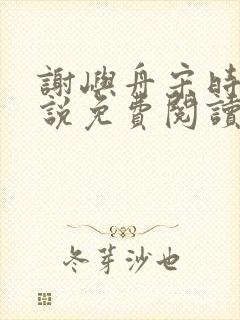 謝嶼舟宋時
說免費閱讀
冬芽沙也